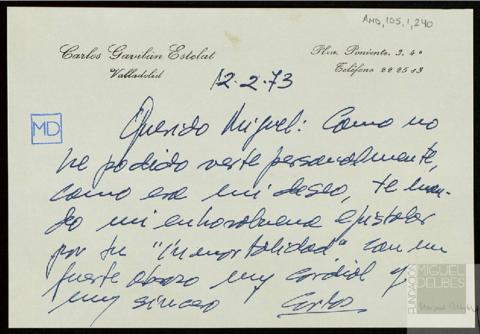 AMD,105,1,240
Carlos Gavilán Estelat
Valladolid
Plza. Poniente, 3, 4º
Teléfono 22 25 13
12-2-73
MD
Querido Miguel: Como no
he podido verte personalmente,
como era mi deseo, te man-
do mi enhorabuena epistolar
por tu "inmortalidad" con un
fuerte abrazo muy cordial y
muy sincero Carlos
FUNDACIÓN
MIGUEL
DELIBES